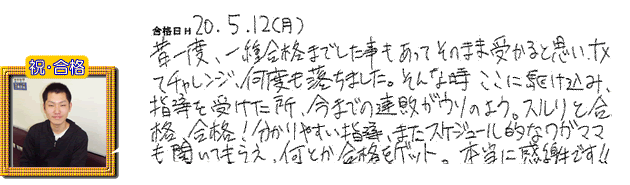 合格日H 20.5.12(月)
祝・合格
昔一度、一種合格までした事もあってそのまま受かると思い、なめ
てチャレンジ、何度も落ちました。そんな時 ここに駆け込み、
指導を受けた所、今までの連敗がウソのよう。スルリと合
格、合格!分かりやすい指導、またスケジュール的なワガママ
も聞いてもらえ、何とか合格をゲット。本当に感謝です!!